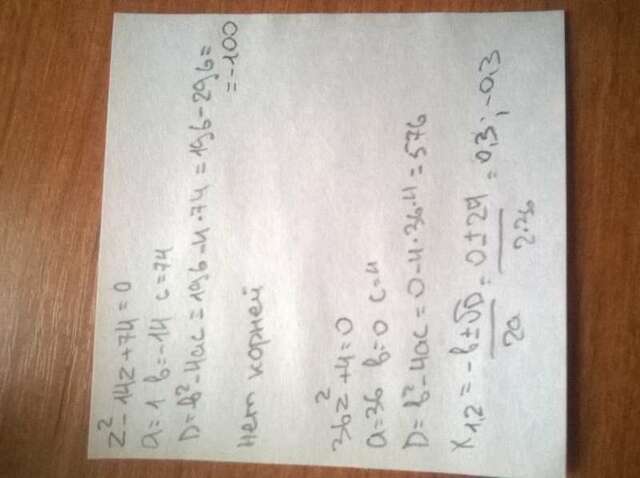 z² - 14z + 74 = 0
a = 1 b = -14 c = 74
D = b² - 4ac = 196 - 4·74 = 196 - 296 =
= -100
нет корней
36z² + 4 = 0
a = 36 b = 0 c = 4
D = b² - 4ac = 0 - 4·36·4 = 576
x₁,₂ = -b±√D / 2a = 0±24 / 2·36 = 0,3; -0,3